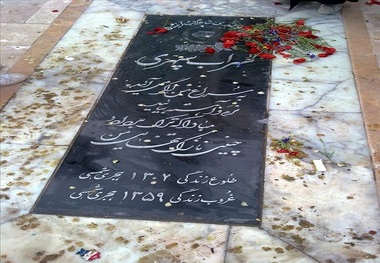 سهراب سپهری
به سراغ من اگر می‌آیید
نرم و آهسته بیایید
مبادا که ترک بردارد
چینی نازک تنهایی من
طلوع زندگی ۱۳۰۷ هجری شمسی
غروب زندگی ۱۳۵۹ هجری شمسی